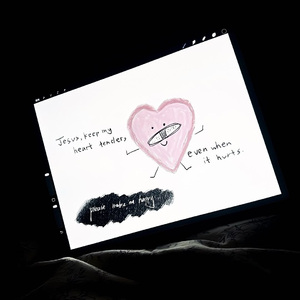 Jesus, keep my
heart tender,
even when
it hurts.
please make me